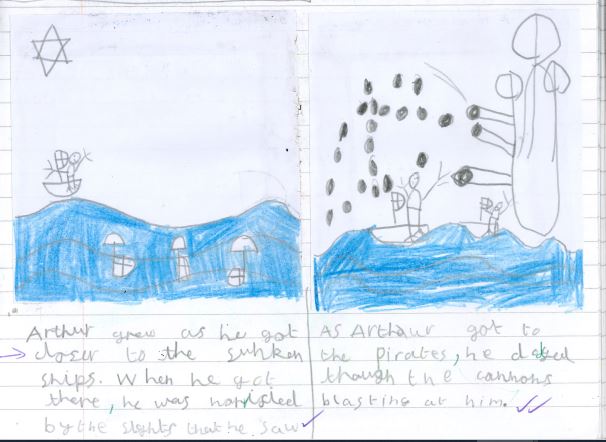 Arthur grew as he got
closer to the sunken
ships. When he got
there, he was
by the sights that he saw
As Arthaur got to
the pirates, he
though the cannons
blasting at him.